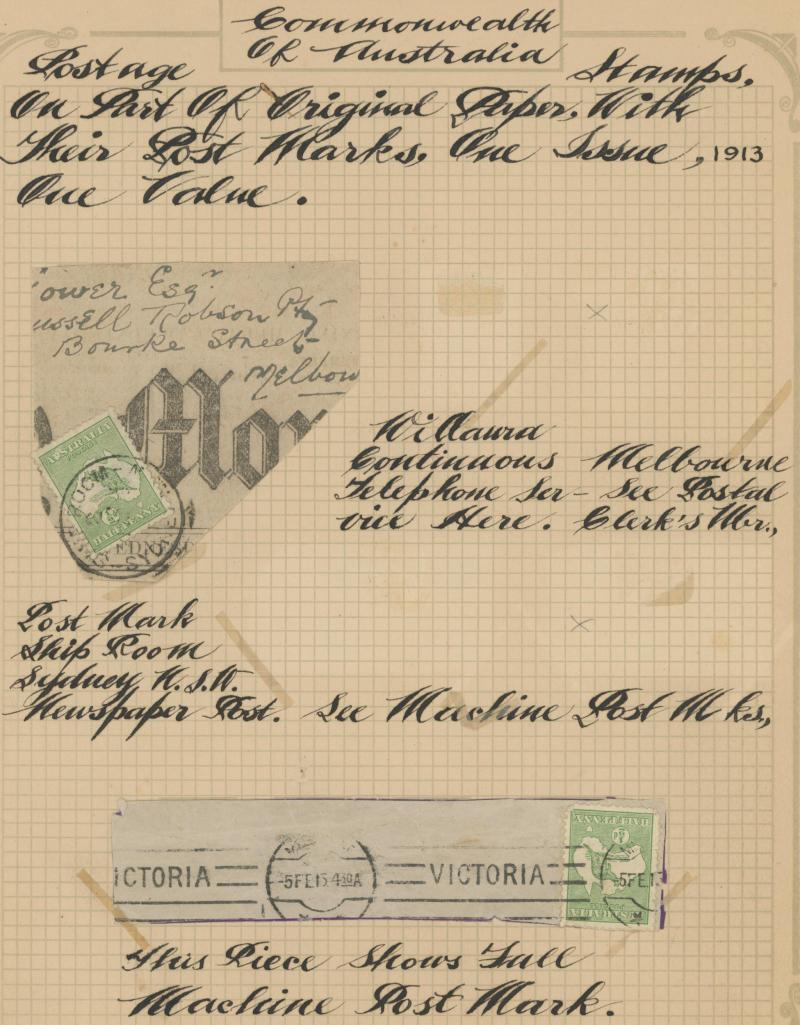 Commonwealth
Of Australia
Postage Stamps,
On Part Of Original Paper, With
Their Post Marks. One Issue, 1913
One Value.
ower Esqr
ussell Robson Pty
Bourke Street
Melbour
Mor
AUSTRALIA
HALFPENNY
SYDNEY
Willaura
Continuous Melbourne
Telephone Ser- See Postal
vice Here. Clerk's Mbr.,
Post Mark
Ship Room
Sydney N.S.W.
Newspaper Post. See Machine Post Mks,
ICTORIA
-5FE15 4 30A
VICTORIA
-5FE1
HALFPENNY
AUSTRALIA
This Piece Shows Full
Machine Post Mark.